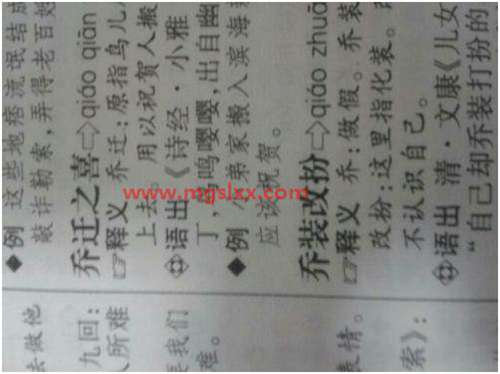 去做他
九回：
人所难
我们
难。
表情。
索》：
◆例 这些地痞流氓结成
敲诈勒索，弄得老百姓
乔迁之喜⇨qiáo qiān
☞释义 乔迁：原指鸟儿
上去。用以祝贺人搬
语出《诗经·小雅
丁，鸟鸣嘤嘤，出自幽
◆例 小弟家搬入滨海
应该祝贺。
乔装改扮⇨qiáo zhuā
☞释义 乔：做假。乔装
改扮：这里指化装。
不认识自己。
语出 清·文康《儿女
“自己却乔装打扮的
www.mgslxx.com